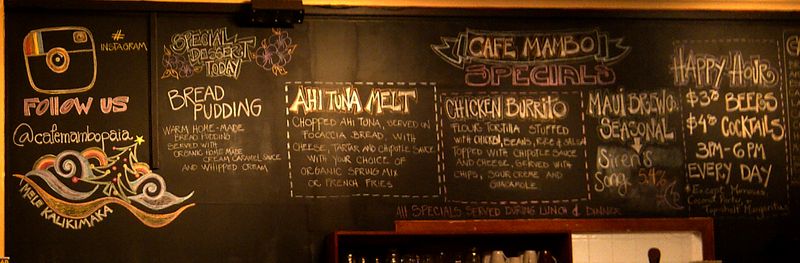 #
INSTAGRAM
FOLLOW US
@cafemambopaia
MELE KALIKIMAKA
SPECIAL
DESSERT
TODAY
BREAD
PUDDING
WARM HOME-MADE
BREAD PUDDING
SERVED WITH
ORGANIC HOME MADE
CREAM CARAMEL SAUCE
AND WHIPPED CREAM
CAFE MAMBO
SPECIALS
AHI TUNA MELT
CHOPPED AHI TUNA, SERVED ON
FOCACCIA BREAD, WITH
CHEESE, TARTAR AND CHIPOTLE SAUCE
WITH YOUR CHOICE OF
ORGANIC SPRING MIX
OR FRENCH FRIES
CHICKEN BURRITO
FLOUR TORTILLA STUFFED
WITH CHICKEN, BEANS, RICE & SALSA
TOPPED WITH CHIPOTLE SAUCE
AND CHEESE, SERVED WITH
CHIPS, SOUR CREME AND
GUACAMOLE
All SPECIALS SERVED DURING LUNCH & DINNER
MAUI BREW CO.
SEASONAL
Siren's
Song 5.4%
HAPPY HOUR
$3.00 BEERS
COCKTAILS
3PM-6PM
EVERY DAY
* Except Mimosas,
Coconut Porter, +
Topshelf Margaritas